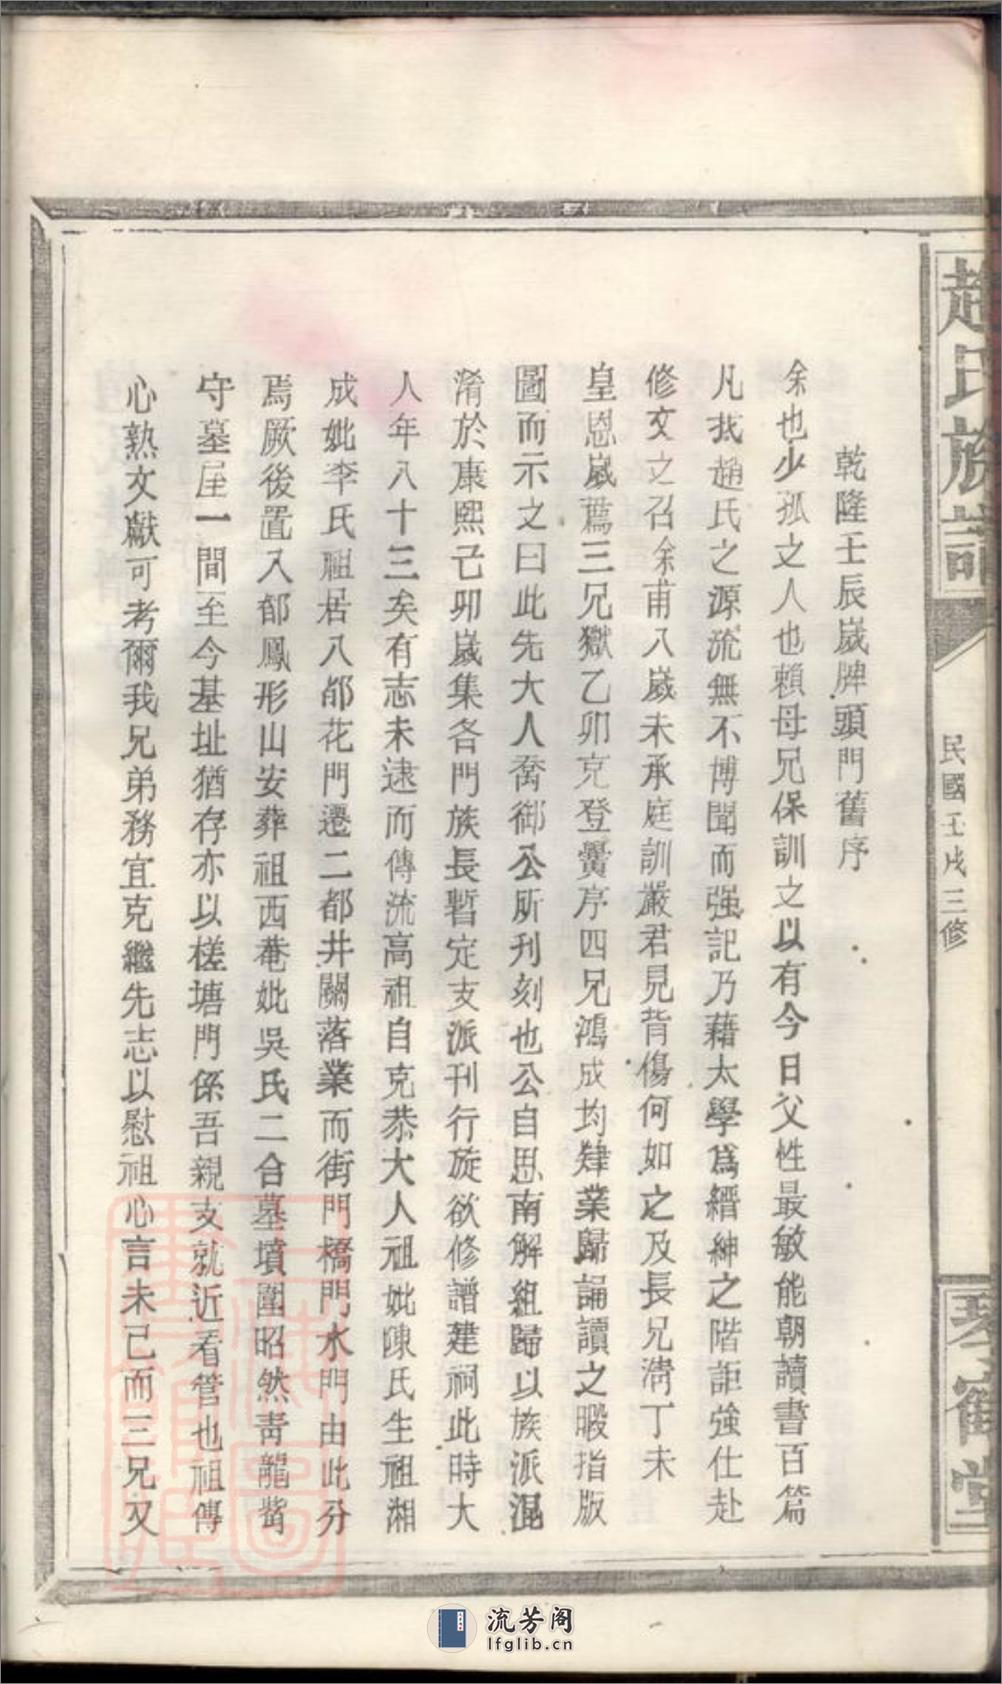 趙氏族譜
民國壬戌三修
琴鶴堂
乾隆壬辰歲牌頭門舊序
余也少孤文人也賴母兄保訓之以有今日父性最敏能朝讀書百篇
凡我趙氏之源流無不博聞而强記乃藉太學爲縉紳之階詎強仕赴
修文之召余甫八歲未承庭訓嚴君見背傷何如之及長兄淸丁未
皇恩歲薦三兄獄乙卯克登黌序四兄鴻成均肄業歸誦讀之暇指版
圖而示之曰此先大人喬御公所刊刻也公自思南解組歸以族派混
淆於康熙己卯歲集各門族長暫定支派刊行旋欲修譜建祠此時大
人年八十三矣有志未逮而傳流高祖自克恭大人祖妣陳氏生祖湘
成妣李氏祖居八都花門遷二都井關落業而街門橋門水門由此分
焉厥後置入郁鳳形山安葬祖西菴妣吳氏二合墓墳圍昭然靑龍嘴
守墓屋一間至今基址猶存亦以槎塘門係吾親支就近看管也祖傳
心熟文獻可考爾我兄弟務宜克繼先志以慰祖心言未已而三兄又
流芳阁
lfglib.cn